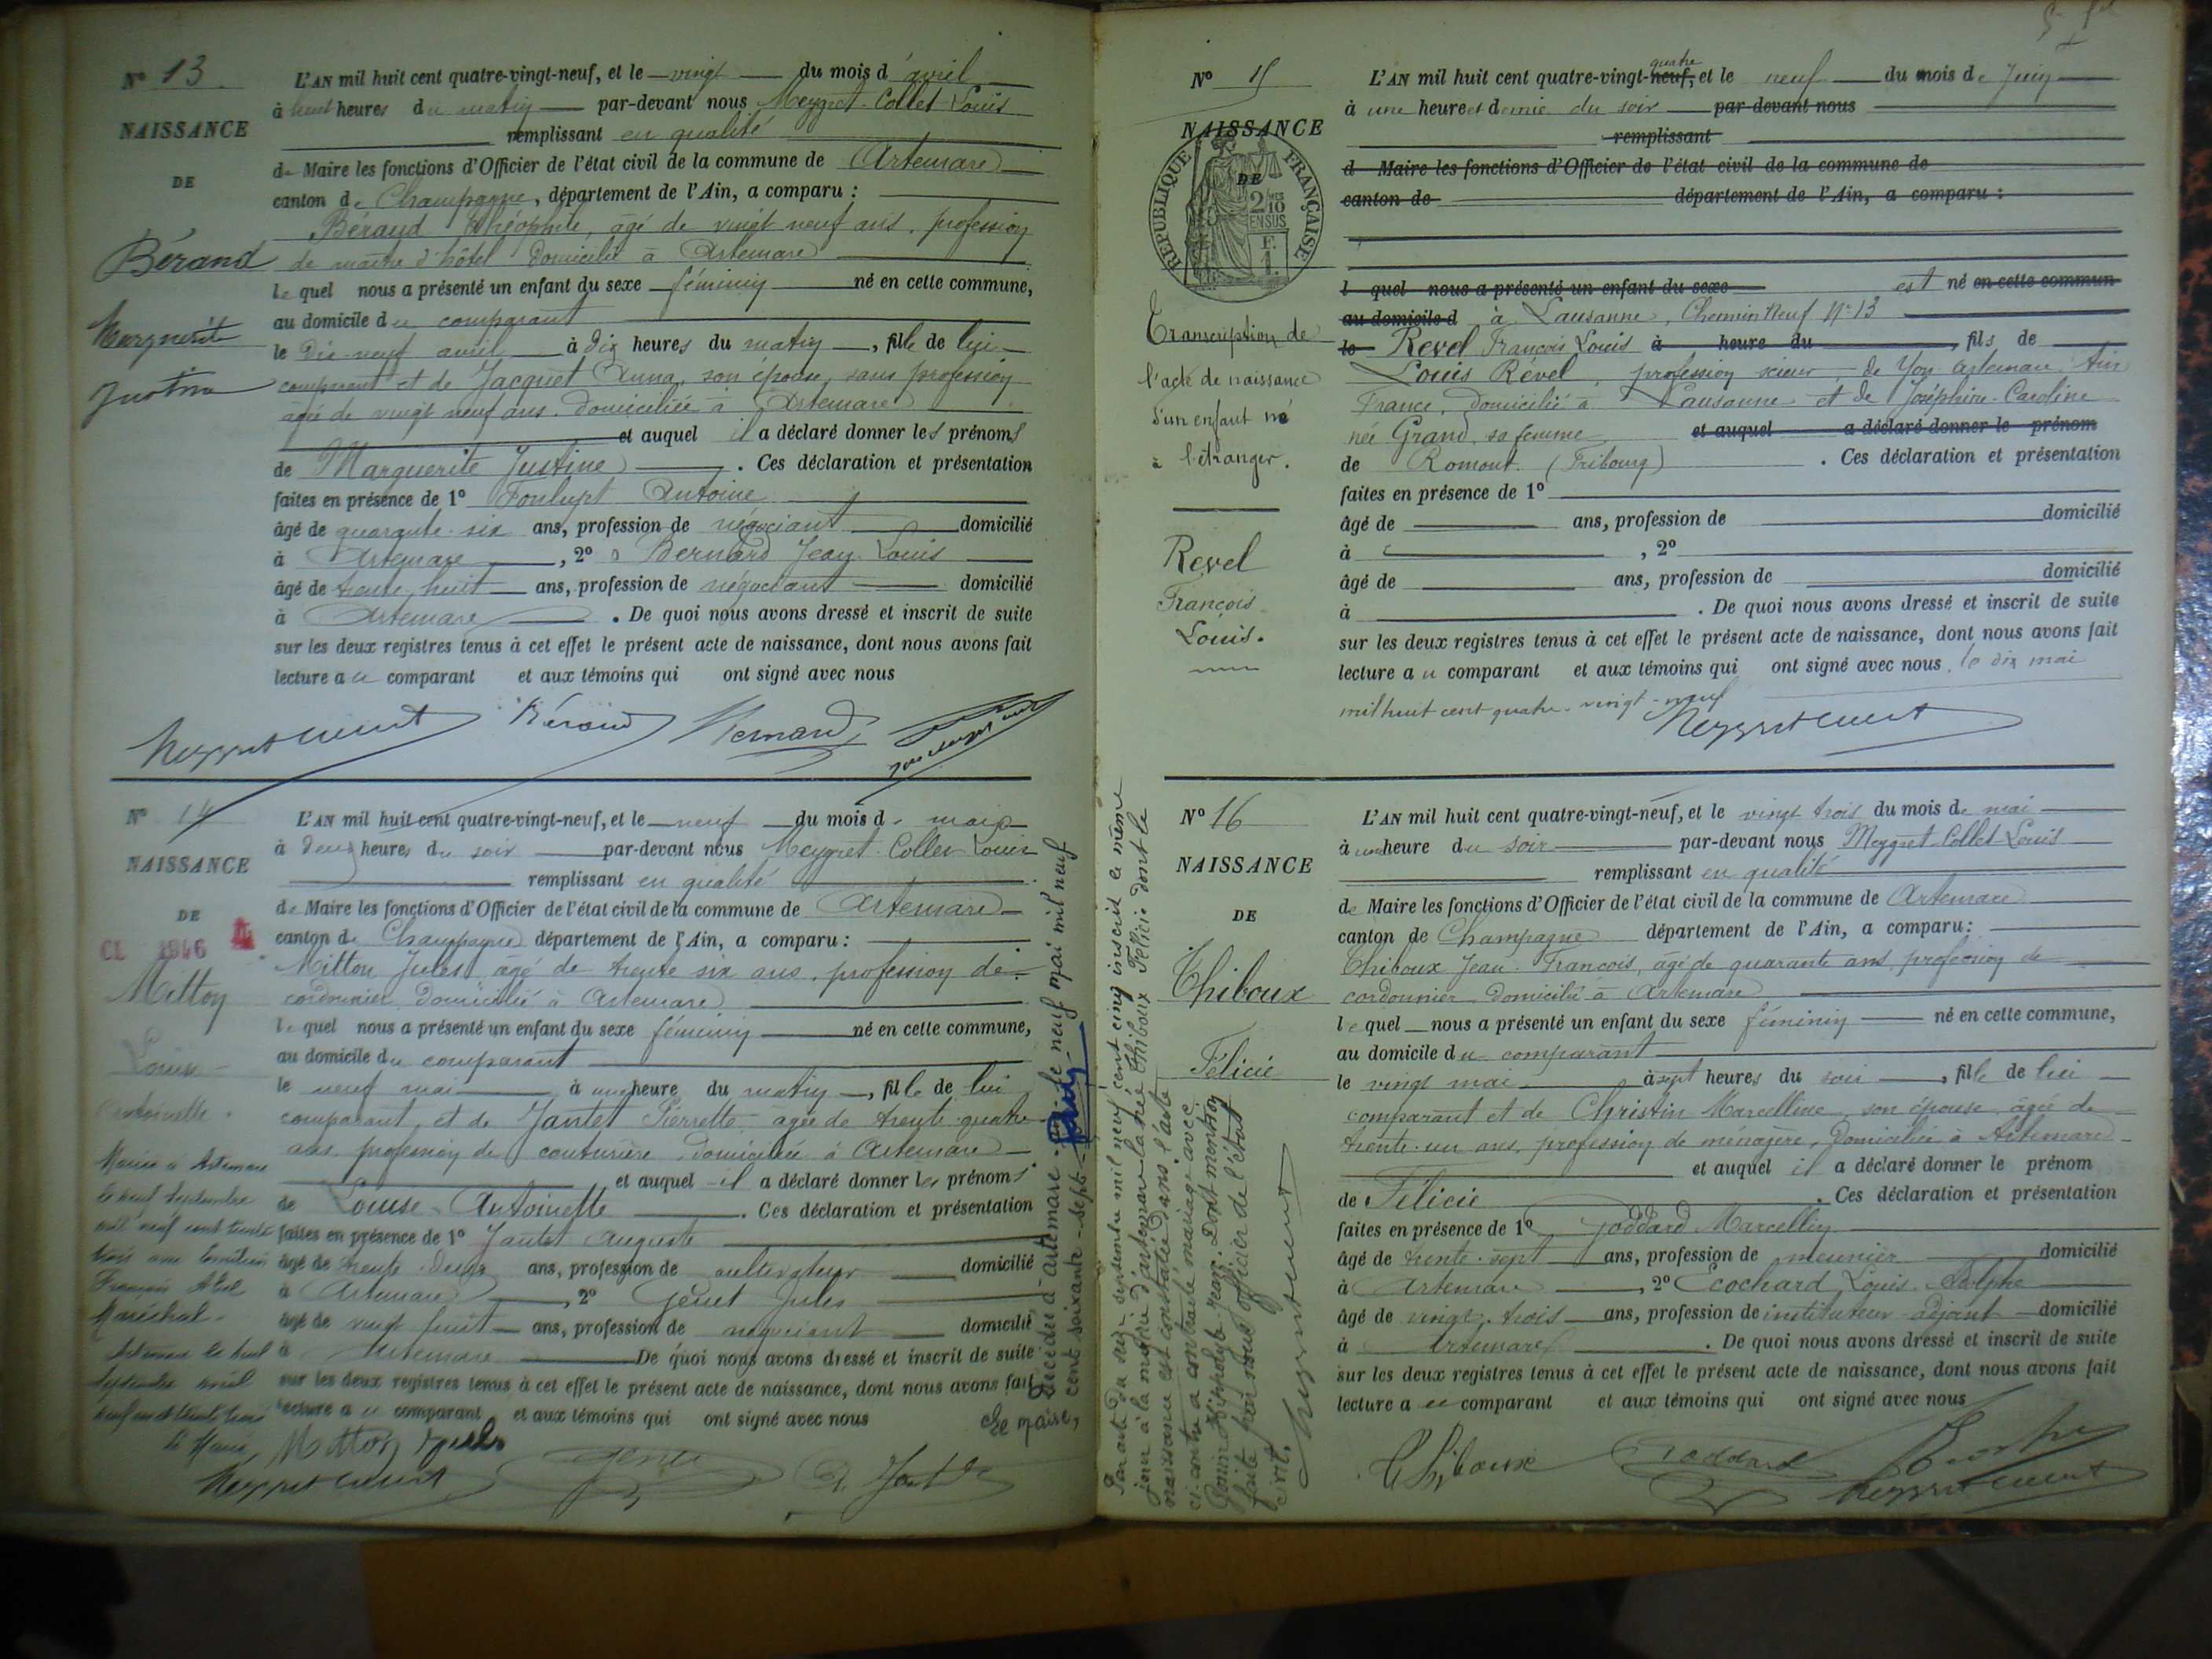 N° 13
NAISSANCE
DE
Bérand
Marguerite
Justine
L'AN mil huit cent quatre-vingt-neuf, et le vingt du mois d'avril
à huit heures du matin par-devant nous Meygret-Collet Louis
remplissant en qualité
de Maire les fonctions d'Officier de l'état civil de la commune de Artemare
canton de Champagne, département de l'Ain, a comparu :
Béraud Théophile, âgé de vingt neuf ans, profession
de maître d'hôtel domicilié à Artemare
lequel nous a présenté un enfant du sexe féminin né en cette commune,
au domicile du comparant
le dix-neuf avril à dix heures du matin, fille de lui
comparant et de Jacquet Anna, son épouse, sans profession
âgée de vingt neuf ans domiciliée à Artemare
et auquel il a déclaré donner les prénoms
de Marguerite Justine. Ces déclaration et présentation
faites en présence de 1° Foulupt Antoine
âgé de quarante-six ans, profession de négociant domicilié
à Artemare, 2° Bernard Jean Louis
âgé de trente huit ans, profession de négociant domicilié
à Artemare. De quoi nous avons dressé et inscrit de suite
sur les deux registres tenus à cet effet le présent acte de naissance, dont nous avons fait
lecture au comparant et aux témoins qui ont signé avec nous
Béraud Bernard
N° 14
NAISSANCE
DE
CL 1846
Mitton
Louise
Antoinette
Mariée à Artemare
le neuf septembre
mil neuf cent trente
trois avec
François Abel
Maréchal.
Artemare le neuf
septembre mil
neuf cent trente trois
Le Maire,
L'AN mil huit cent quatre-vingt-neuf, et le neuf du mois de mai
à deux heures du soir par-devant nous Meygret-Collet Louis
remplissant en qualité
de Maire les fonctions d'Officier de l'état civil de la commune de Artemare
canton de Champagne département de l'Ain, a comparu :
Mitton Jules âgé de trente six ans, profession de
cordonnier domicilié à Artemare
lequel nous a présenté un enfant du sexe féminin né en cette commune,
au domicile du comparant
le neuf mai à une heure du matin, fille de lui
comparant et de Jantet Pierrette âgée de trente-quatre
ans profession de couturière domiciliée à Artemare
et auquel il a déclaré donner les prénoms
de Louise-Antoinette. Ces déclaration et présentation
faites en présence de 1° Jantet Auguste
âgé de trente deux ans, profession de cultivateur domicilié
à Artemare, 2° Genet Jules
âgé de vingt huit ans, profession de négociant domicilié
à Artemare De quoi nous avons dressé et inscrit de suite
sur les deux registres tenus à cet effet le présent acte de naissance, dont nous avons fait
lecture au comparant et aux témoins qui ont signé avec nous
Mitton Jules
Décédée à Artemare le neuf mai mil neuf
cent soixante-sept
Le maire,
N° 15
NAISSANCE
DE
RÉPUBLIQUE FRANÇAISE
Transcription de
l'acte de naissance
d'un enfant né
à l'étranger.
Revel
François
Louis.
L'AN mil huit cent quatre-vingt-neuf, quatre et le neuf du mois de Juin
à une heure et demie du soir par-devant nous
remplissant
d Maire les fonctions d'Officier de l'état civil de la commune de
canton de département de l'Ain, a comparu :
l quel nous a présenté un enfant du sexe est né en cette commun
au domicile d à Lausanne, Chemin Neuf N° 13
le Revel François Louis à heure du, fils de
Louis Revel, profession scieur, de Yon Artemare Ain
France, domicilié à Lausanne et de Joséphine-Caroline
née Grand, sa femme et auquel a déclaré donner le prénom
de Romont. (Fribourg). Ces déclaration et présentation
faites en présence de 1°
âgé de ans, profession de domicilié
à , 2°
âgé de ans, profession de domicilié
à . De quoi nous avons dressé et inscrit de suite
sur les deux registres tenus à cet effet le présent acte de naissance, dont nous avons fait
lecture au comparant et aux témoins qui ont signé avec nous le dix mai
mil huit cent quatre-vingt-neuf
N° 16
NAISSANCE
DE
Thiboux
Félicie
L'AN mil huit cent quatre-vingt-neuf, et le vingt trois du mois de mai
à une heure du soir par-devant nous Meygret-Collet Louis
remplissant en qualité
de Maire les fonctions d'Officier de l'état civil de la commune de Artemare
canton de Champagne département de l'Ain, a comparu :
Thiboux Jean-François, âgé de quarante ans, profession de
cordonnier domicilié à Artemare
lequel nous a présenté un enfant du sexe féminin né en cette commune,
au domicile du comparant
le vingt mai à sept heures du soir, fille de lui
comparant et de Christin Marcelline, son épouse, âgée de
trente-un ans, profession de ménagère, domiciliée à Artemare
et auquel il a déclaré donner le prénom
de Félicie. Ces déclaration et présentation
faites en présence de 1° Goddard Marcellin
âgé de trente-sept ans, profession de meunier domicilié
à Artemare, 2° Ecochard Louis
âgé de vingt-trois ans, profession de instituteur-adjoint domicilié
à Artemare. De quoi nous avons dressé et inscrit de suite
sur les deux registres tenus à cet effet le présent acte de naissance, dont nous avons fait
lecture au comparant et aux témoins qui ont signé avec nous
Thiboux Goddard
Par acte du six septembre mil neuf cent cinq inscrit le même
jour à la mairie d'Artemare la née Thiboux Félicie dont la
naissance est constatée dans l'acte
ci-contre a contracté mariage avec
Dont mention
faite par nous officier de l'état
civil.